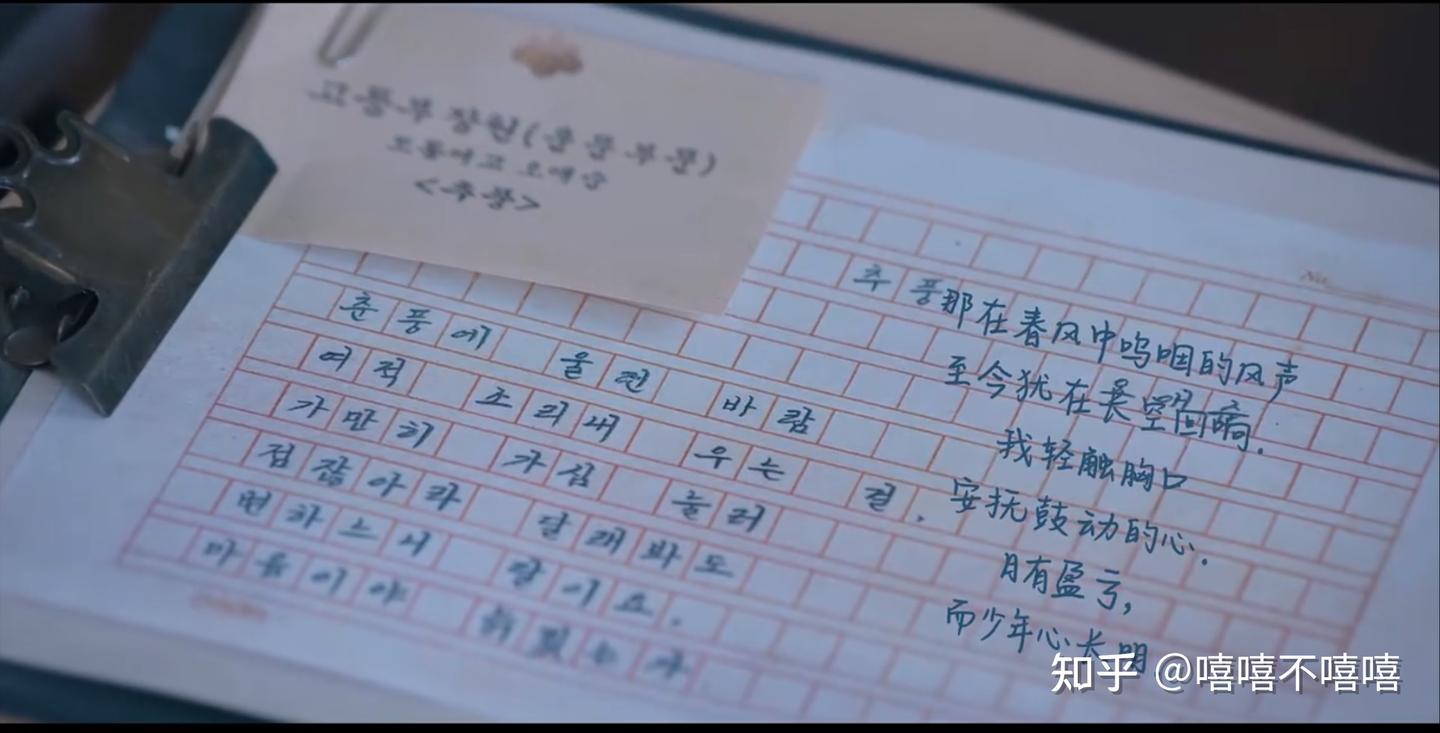 고등부 장원(운문 부문)
도동여고 오애순
<추풍>
No.
추풍
춘풍에 울던 바람
여적 소리내 우는 걸,
가만히 가심 눌러
점잖아라 달래봐도
변하느니 달이요,
마음이야
那在春风中呜咽的风声
至今犹在长空回响.
我轻触胸口
安抚鼓动的心.
月有盈亏,
而少年心长明
知乎 @嘻嘻不嘻嘻